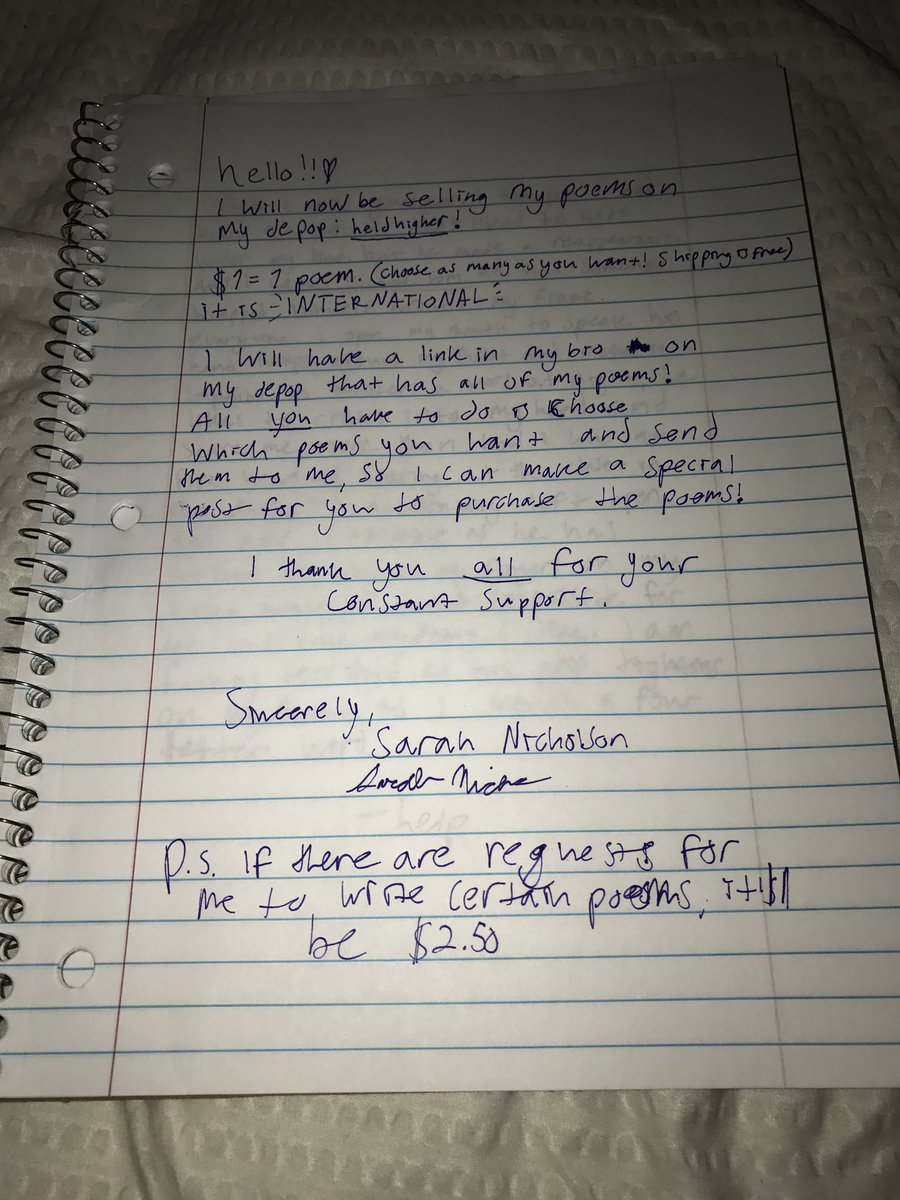 hello!!♡
I will now be selling my poems on
my depop: heldhigher!
$1 = 1 poem. (choose as many as you want! Shipping is free)
it is INTERNATIONAL
I will have a link in my bio on
my depop that has all of my poems!
All you have to do is choose
which poems you want and send
them to me, so I can make a special
post for you to purchase the poems!
I thank you all for your
constant support.
Sincerely,
Sarah Nicholson
P.S. If there are requests for
me to write certain poems, it'll
be $2.50